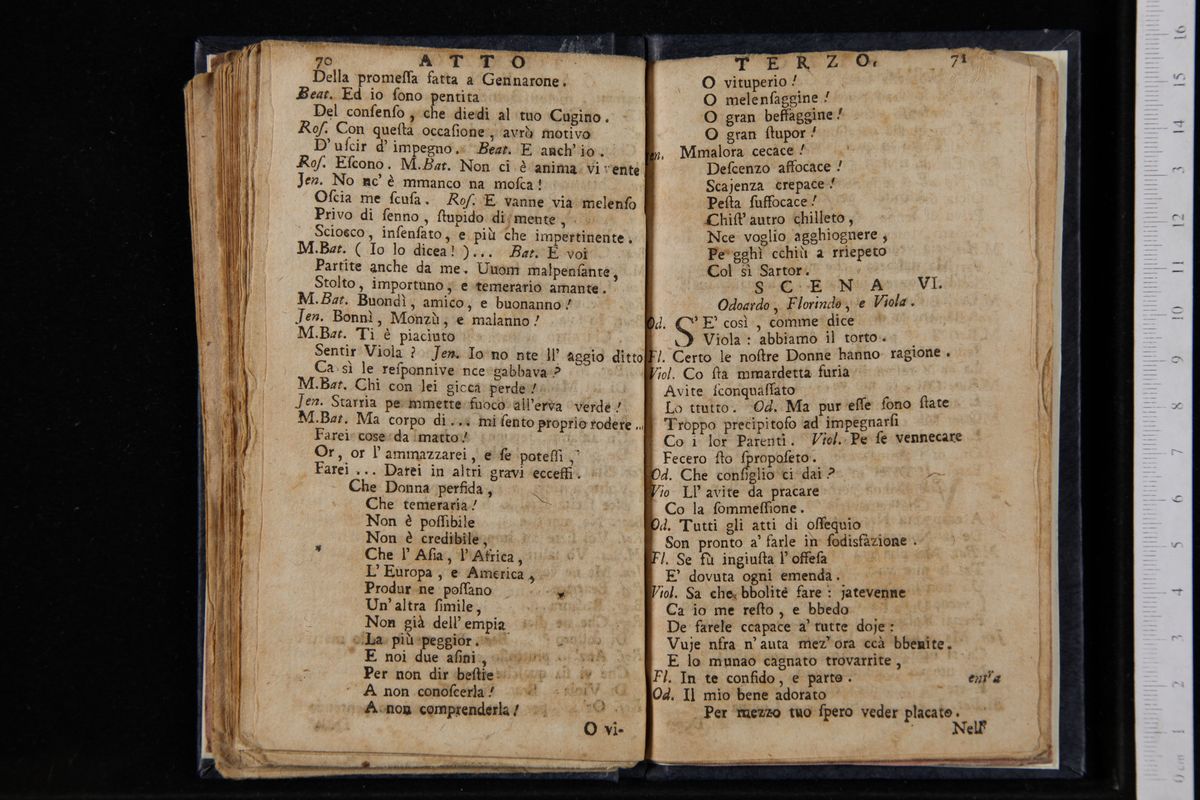 70 ATTO
Della promeſſa fatta a Gennarone.
Beat. Ed io ſono pentita
Del conſenſo, che diedi al tuo Cugino.
Roſ. Con queſta occaſione, avrò motivo
D'uſcir d'impegno. Beat. E anch'io.
Roſ. Eſcono. M.Bat. Non ci è anima vivente
Jen. No nc'è mmanco na moſca!
Oſcia me ſcuſa. Roſ. E vanne via melenſo
Privo di ſenno, ſtupido di mente,
Sciocco, inſenſato, e più che impertinente.
M.Bat. (Io lo dicea!)... Bat. E voi
Partite anche da me. Uuom malpenſante,
Stolto, importuno, e temerario amante.
M.Bat. Buondì, amico, e buonanno!
Jen. Bonnì, Monzù, e malanno!
M.Bat. Ti è piaciuto
Sentir Viola? Jen. Io no nte ll'aggio ditto
Ca sì le reſponnive nce gabbava?
M.Bat. Chi con lei gicca perde!
Jen. Starria pe mmette fuoco all'erva verde!
M.Bat. Ma corpo di... mi ſento proprio rodere...
Farei coſe da matto!
Or, or l'ammazzarei, e ſe poteſſi,
Farei... Darei in altri gravi ecceſſi.
Che Donna perfida,
Che temeraria!
Non è poſſibile
Non è credibile,
Che l'Aſia, l'Africa,
L'Europa, e America,
Produr ne poſſano
Un'altra ſimile,
Non già dell'empia
La più peggior.
E noi due aſini,
Per non dir beſtie
A non conoſcerla!
A non comprenderla!
O vi-
TERZO. 71
O vituperio!
O melenſaggine!
O gran beffaggine!
O gran ſtupor!
Jen. Mmalora cecace!
Deſcenzo affocace!
Scajenza crepace!
Peſta ſuffocace!
Chiſt'autro chilleto,
Nce voglio agghiognere,
Pe gghì cchiù a rriepeto
Col sì Sartor.
SCENA VI.
Odoardo, Florindo, e Viola.
Od. S'E' così, comme dice
Viola: abbiamo il torto.
Fl. Certo le noſtre Donne hanno ragione.
Viol. Co ſta mmardetta furia
Avite ſconquaſſato
Lo ttutto. Od. Ma pur eſſe ſono ſtate
Troppo precipitoſo ad impegnarſi
Co i lor Parenti. Viol. Pe ſe vennecare
Fecero ſto ſpropoſeto.
Od. Che conſiglio ci dai?
Vio Ll'avite da pracare
Co la ſommeſſione.
Od. Tutti gli atti di oſſequio
Son pronto a' farle in ſodisfazione.
Fl. Se fù ingiuſta l'offeſa
E' dovuta ogni emenda.
Viol. Sa che bbolite fare: jatevenne
Ca io me reſto, e bbedo
De farele ccapace a' tutte doje:
Vuje nfra n'auta mez'ora ccà bbenite.
E lo munao cagnato trovarrite,
Fl. In te confido, e parto. entra
Od. Il mio bene adorato
Per mezzo tuo ſpero veder placato.
Nell'